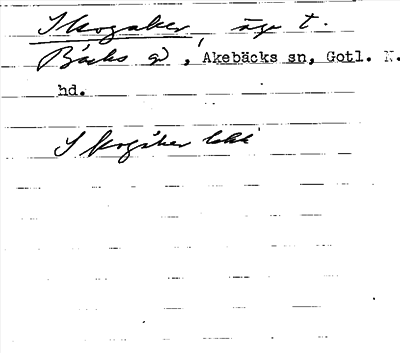 Skogaker äga t.
Bäcks gd, Akebäcks sn, Gotl. N.
hd.
Skogåker